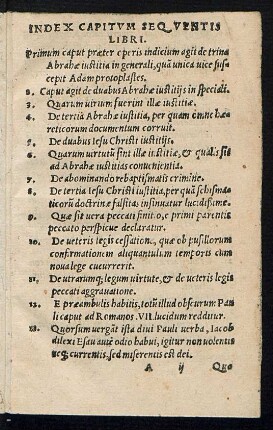 INDEX CAPITVM SEQVENTIS
LIBRI.
Primum caput præter operis indicium agit de trina
Abrahæ iustitia in generali, quã unica uice sus
cepit Adam protoplastes.
2. Caput agit de duabus Abrahæ iustitijs in speciali.
3. Quarum uirium fuerint illæ iustitiæ.
4. De tertia Abrahæ iustitia, per quam omne hæ
reticorum documentum corruit.
5. De duabus Iesu Christi iustitijs.
6. Quarum uirtutũ sint illæ iustitiæ, & qualis sit
ad Abrahæ iustitias conuenientia.
7. De abominando rebaptismatis crimine.
8. De tertia Iesu Christi iustitia, per quã schismа
ticorũ doctrinæ falsitas insinuatur lucidissime.
9. Quæ sit uera peccati finitio, e primi parentis
peccato perspicue declaratur.
10. De ueteris legis cessatione, quæ ob pusillorum
confirmationem aliquantulum temporis cum
noua lege cucurrerit.
11. De utrarumq; legum uirtute, & de ueteris legis
peccati aggrauatione.
12. E præambulis habitis, totũ illud obscurum Pau
li caput ad Romanos .VII. lucidum redditur.
13. Quorsum uergãt ista diui Pauli uerba, Iacob
dilexi Esau aũt odio habui, igitur non uolentis
neq; currentis, sed miserentis est dei.
A ij Quo